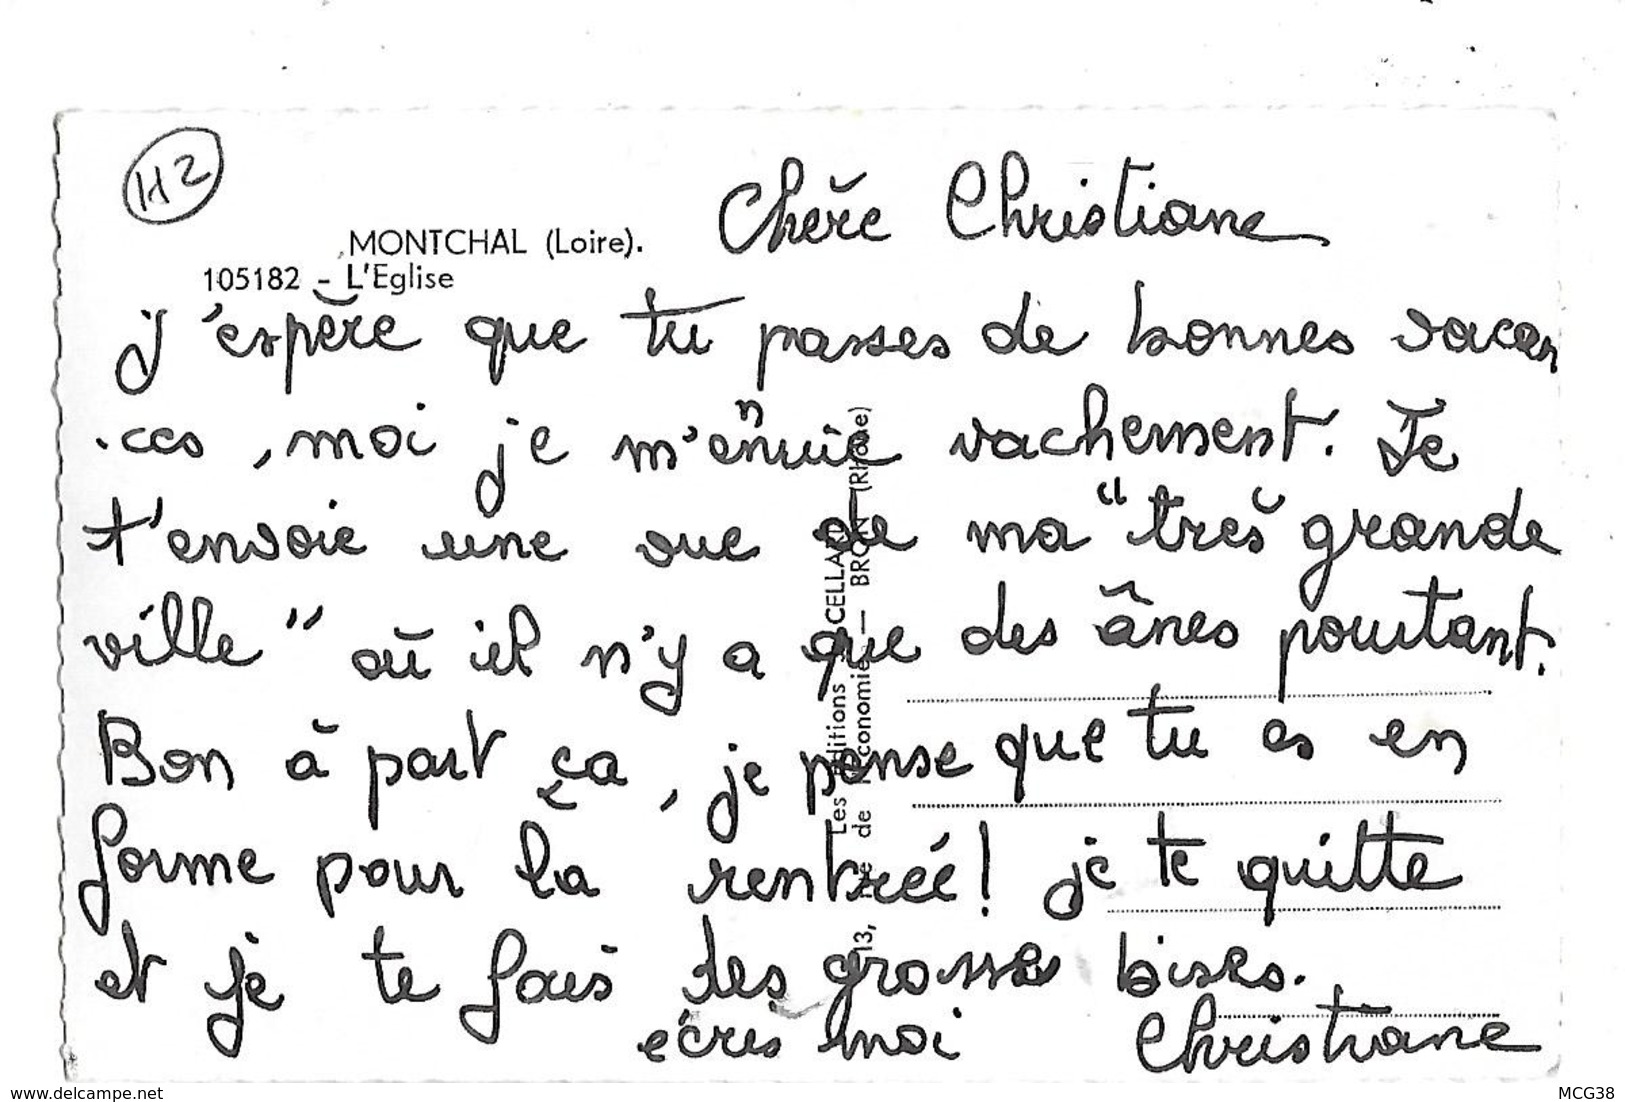 H2
MONTCHAL (Loire).
105182 - L'Eglise
Chère Christiane
j'espère que tu passes de bonnes vacan
-ces, moi je m'ennuie vachement. Je
t'envoie une vue de ma "très grande
ville" où il n'y a que des ânes pourtant.
Bon à part ça, je pense que tu es en
forme pour la rentrée! je te quitte
et je te fais des grosses bises.
écris moi Christiane
Les Editions CELLARD
13, de l'Economie — BRON (Rhône)
www.delcampe.net
MCG38